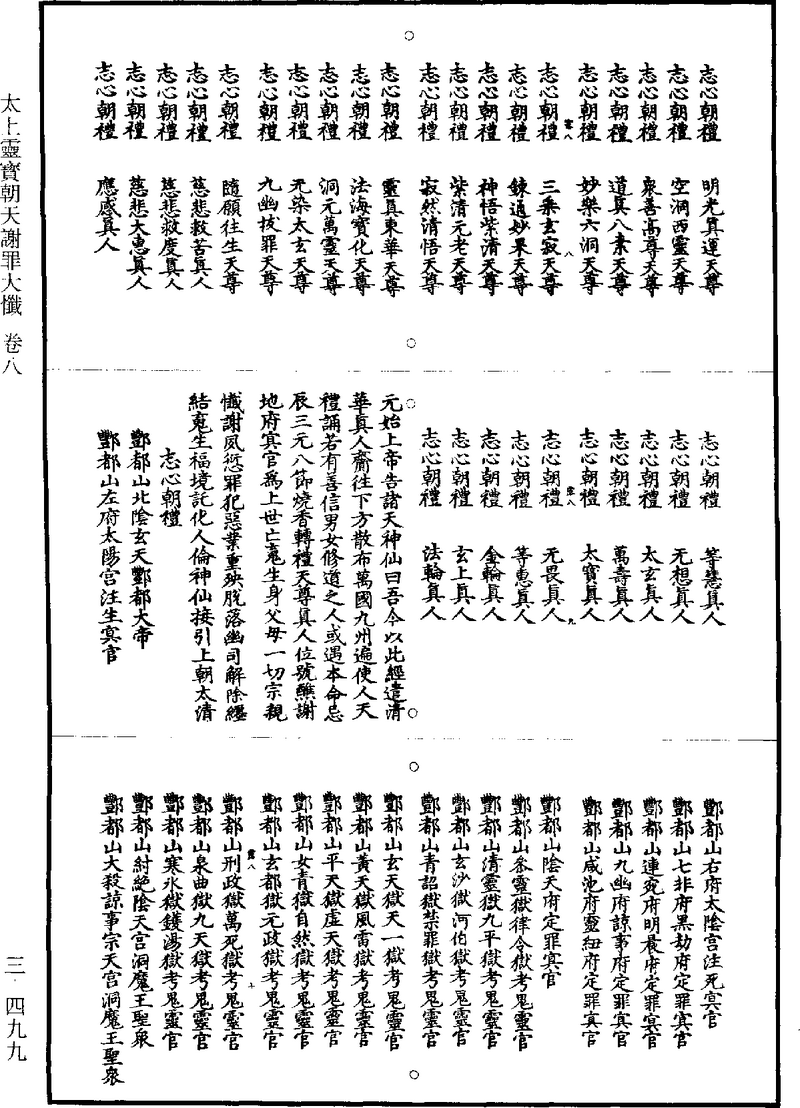 太上靈寶朝天謝罪大懺　卷八
三·四九九
志心朝禮　明光真運天尊
志心朝禮　空洞西靈天尊
志心朝禮　衆善高尊天尊
志心朝禮　道真八素天尊
志心朝禮　妙樂六洞天尊
志心朝禮　三乘玄寂天尊
志心朝禮　鍊通妙果天尊
志心朝禮　神悟紫清天尊
志心朝禮　紫清元老天尊
志心朝禮　寂然清悟天尊
志心朝禮　靈真東華天尊
志心朝禮　法海寶化天尊
志心朝禮　洞元萬靈天尊
志心朝禮　无染太玄天尊
志心朝禮　九幽拔罪天尊
志心朝禮　隨願往生天尊
志心朝禮　慈悲救苦真人
志心朝禮　慈悲救度真人
志心朝禮　慈悲大惠真人
志心朝禮　應感真人
志心朝禮　等慧真人
志心朝禮　无想真人
志心朝禮　太玄真人
志心朝禮　萬壽真人
志心朝禮　太寶真人
志心朝禮　无畏真人
志心朝禮　等惠真人
志心朝禮　金輪真人
志心朝禮　玄上真人
志心朝禮　法輪真人
元始上帝告諸天神仙曰吾今以此經遣清
華真人齋往下方散布萬國九州遍使人天
禮誦若有善信男女修道之人或遇本命忌
辰三元八節燒香轉禮天尊真人位號醮謝
地府冥官為上世亡䰟生身父母一切宗親
懺謝夙愆罪犯惡業重殃脫落幽司解除纏
結䰟生福境託化人倫神仙接引上朝太清
志心朝禮
酆都山北陰玄天酆都大帝
酆都山左府太陽宮注生冥官
酆都山右府太陰宮注死冥官
酆都山七非府黑劫府定罪冥官
酆都山連宛府明晨府定罪冥官
酆都山九幽府諒事府定罪冥官
酆都山咸池府靈紐府定罪冥官
酆都山陰天府定罪冥官
酆都山忝靈獄律令獄考鬼靈官
酆都山清靈獄九平獄考鬼靈官
酆都山玄沙獄河伯獄考鬼靈官
酆都山青詔獄禁罪獄考鬼靈官
酆都山玄天獄天一獄考鬼靈官
酆都山黃天獄風雷獄考鬼靈官
酆都山平天獄虛天獄考鬼靈官
酆都山女青獄自然獄考鬼靈官
酆都山玄都獄元政獄考鬼靈官
酆都山刑政獄萬死獄考鬼靈官
酆都山泉曲獄九天獄考鬼靈官
酆都山寒冰獄鑊湯獄考鬼靈官
酆都山紂絕陰天宮洞魔王聖衆
酆都山大殺諒事宗天宮洞魔王聖衆